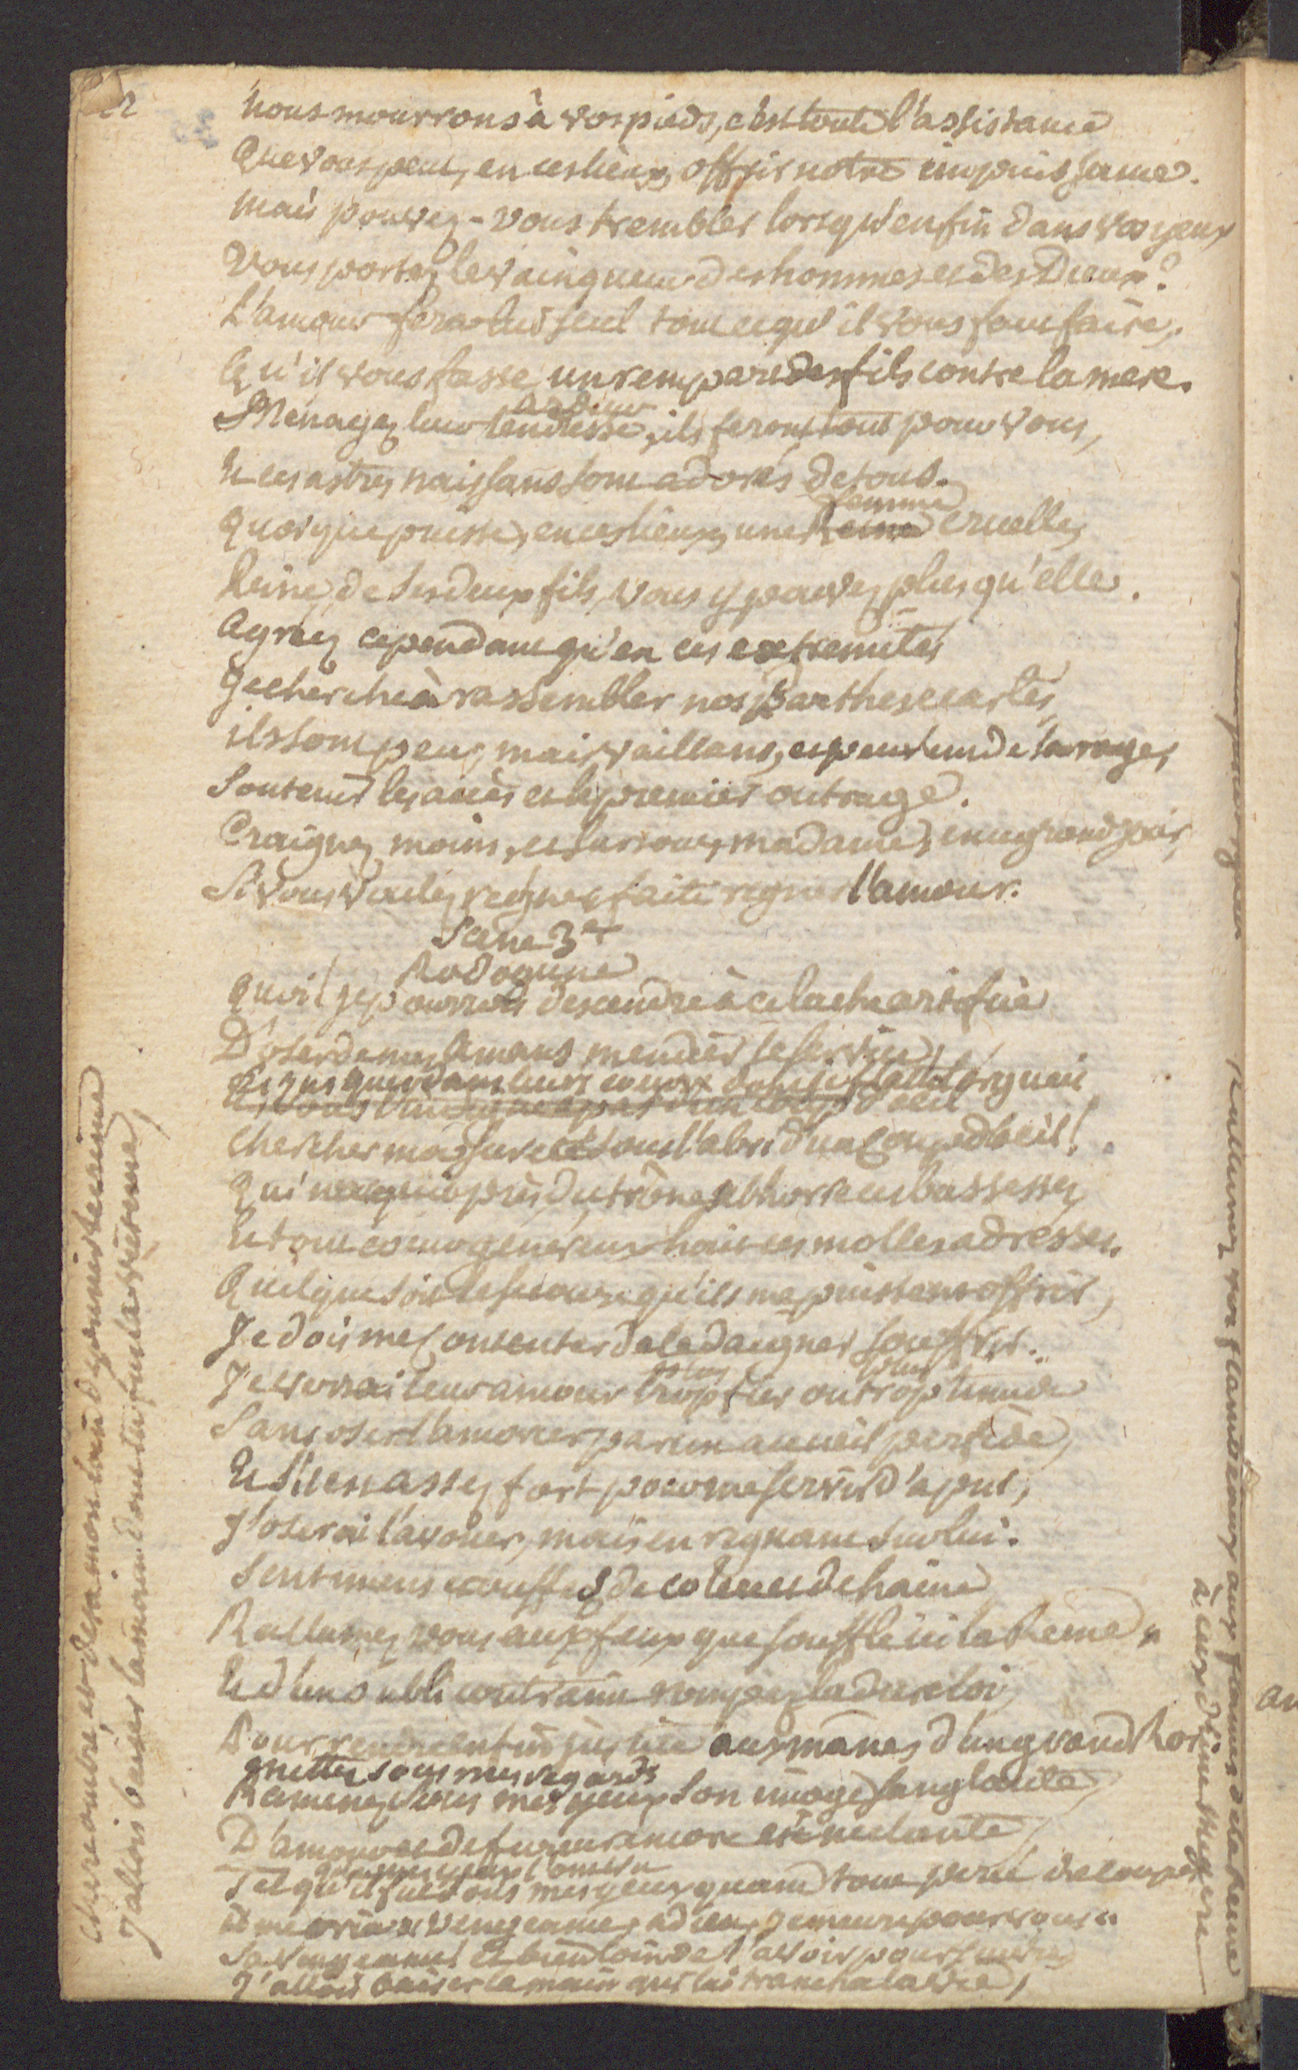 22
nous mourrons à vos pieds, c'est toute l'assistance
Que vous peut, en ces lieux, offrir notre impuissance.
mais pouvez-vous trembler lorsqu'enfin dans vos yeux
Vous portez le vainqueur des hommes et des Dieux?
L'amour fera lui seul tout ce qu'il vous faut faire,
Qu'il vous fasse un rempart des fils contre la mere.
ardeur
Menagez leur tendresse, ils feront tout pour vous,
Et ces astres naissans sont adorés de tous.
femme
quoique puisse, en ces lieux, une Reine cruelle,
Reine de ses deux fils, vous y pouvez plus qu'elle.
Agréez cependant qu'en ces extremités
Je cherche à rassembler nos Parthes ecartés,
ils sont peu, mais vaillans, et peuvent de sa rage,
Soutenir les accès et le premier outrage.
Craignez moins, et surtout, madame, en ce grand jour,
Si vous voulez regner faite regner l'amour.
Scene 3e
Rodogune
quoi! je pourrois descendre à ce lache artifice
D'oser de mes amans mendier le service,
Et jusques dans leurs coeurs orgueil
d'oeil
Chercher ma sureté sous l'abri d'un coup d'oeil!
Qui naquit près du trône abhorre ces bassesses,
Et tout coeur genereux hait ces molles adresses.
Quelque soit le secours qu'ils me puissent offrir,
Je dois me contenter de le daigner souffrir.
plus plus
Je verrai leur amour trop fier ou trop timide
Sans oser l'amorcer par un accueil perfide,
Et s'il est assez fort pour me servir d'apui,
J'oserai l'avouer, mais en regnant sur lui.
Sentimens etouffez de colere et de haine
Rallumez vous aux feux que souffle ici la Reine,
Et d'un oubli contraint rompez la dure loi,
Pour rendre enfin justice aux mânes d'un grand Roi
mettez sous mes regards
Ramenez sous mes yeux son image sanglante,
D'amour et de fureur encore etincelante,
que mes yeux l'ont vu
Tel qu'il fut sous mes yeux quand tout percé de coups
il me cria: vengeance, adieu, je meurs pour vous.
Sa vengeance et bien loin de l'avoir poursuivie,
J'allois baiser la main qui lui trancha la vie,
chere ombre, et
J'allois baiser la main dont tu fus la victime,
Rallumez vos flambeaux aux flammes de la Reine
à ceux d'une megere